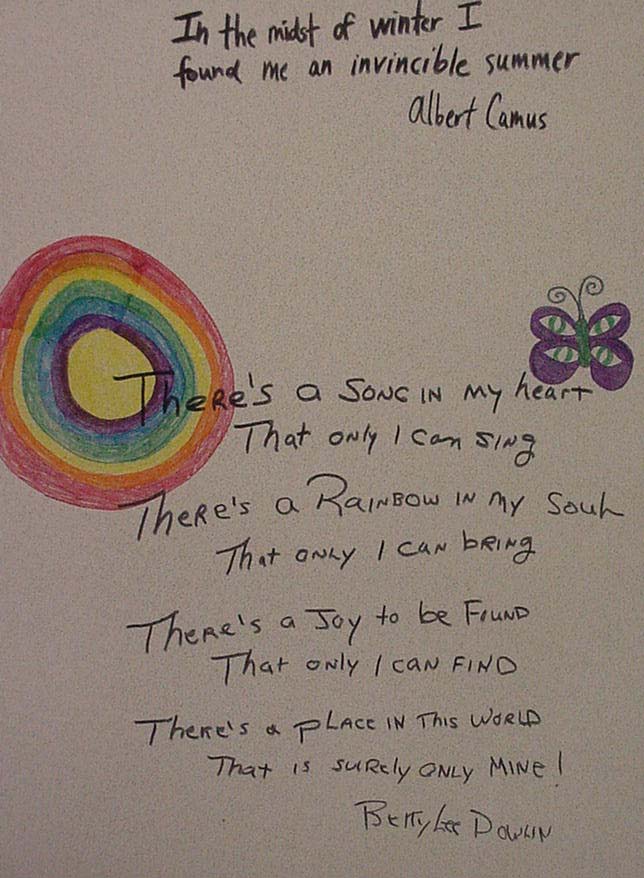 In the midst of winter I
found me an invincible summer
Albert Camus
There's a SONG IN my heart
That only I can sing
There's a RAINBOW IN my Soul
That ONLY I CAN bRING
There's a Joy to be FOUND
That only I CAN FIND
There's a pLACE IN This WORLD
That is suRely ONLY MINE!
Betty Lee